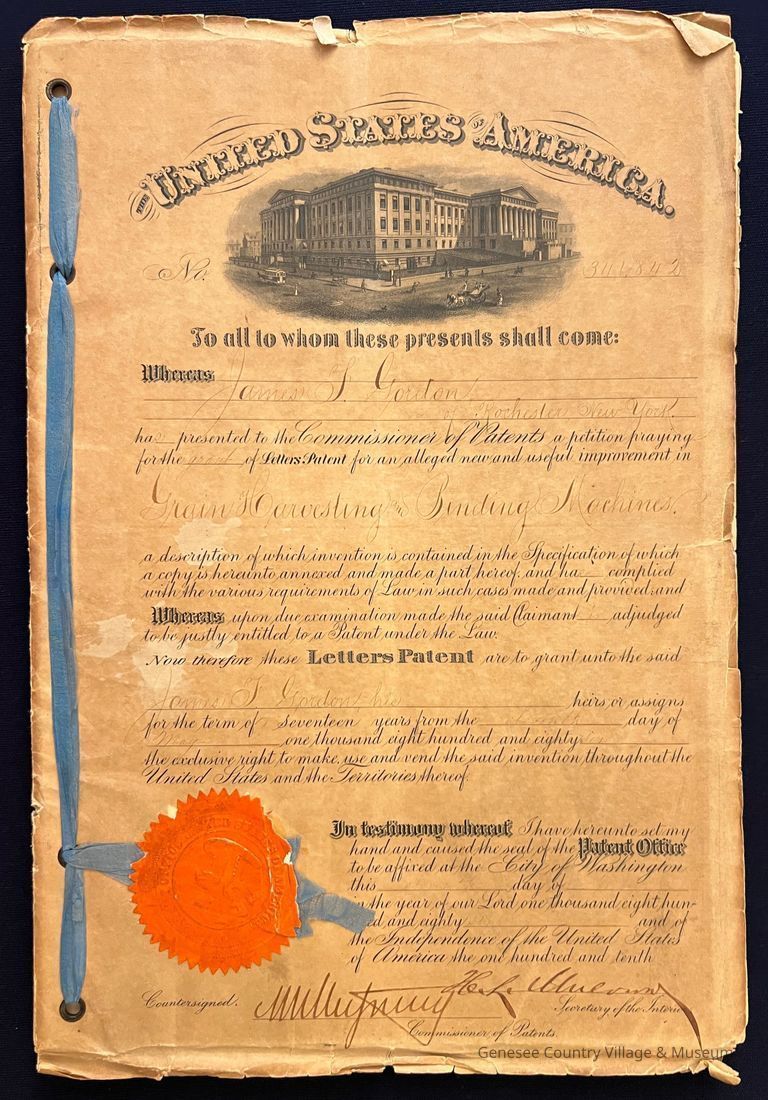 THE UNITED STATES OF AMERICA.
No. 346842
To all to whom these presents shall come:
Whereas James F. Gordon
of Rochester New York.
has presented to the Commissioner of Patents a petition praying
for the grant of Letters Patent for an alleged new and useful improvement in
Grain Harvesting and Binding Machines.
a description of which invention is contained in the Specification of which
a copy is hereunto annexed and made a part hereof, and ha complied
with the various requirements of Law in such cases made and provided, and
Whereas upon due examination made the said Claimant adjudged
to be justly entitled to a Patent under the Law.
Now therefore these Letters Patent are to grant unto the said
James F. Gordon his heirs or assigns
for the term of seventeen years from the day of
one thousand eight hundred and eighty
the exclusive right to make, use and vend the said invention throughout the
United States and the Territories thereof.
In testimony whereof I have hereunto set my
hand and caused the seal of the Patent Office
to be affixed at the City of Washington
this day of
in the year of our Lord one thousand eight hun-
ed and eighty and of
the Independence of the United States
of America the one hundred and tenth
Countersigned.
Secretary of the Interi
Commissioner of Patents.
Genesee Country Village & Museum